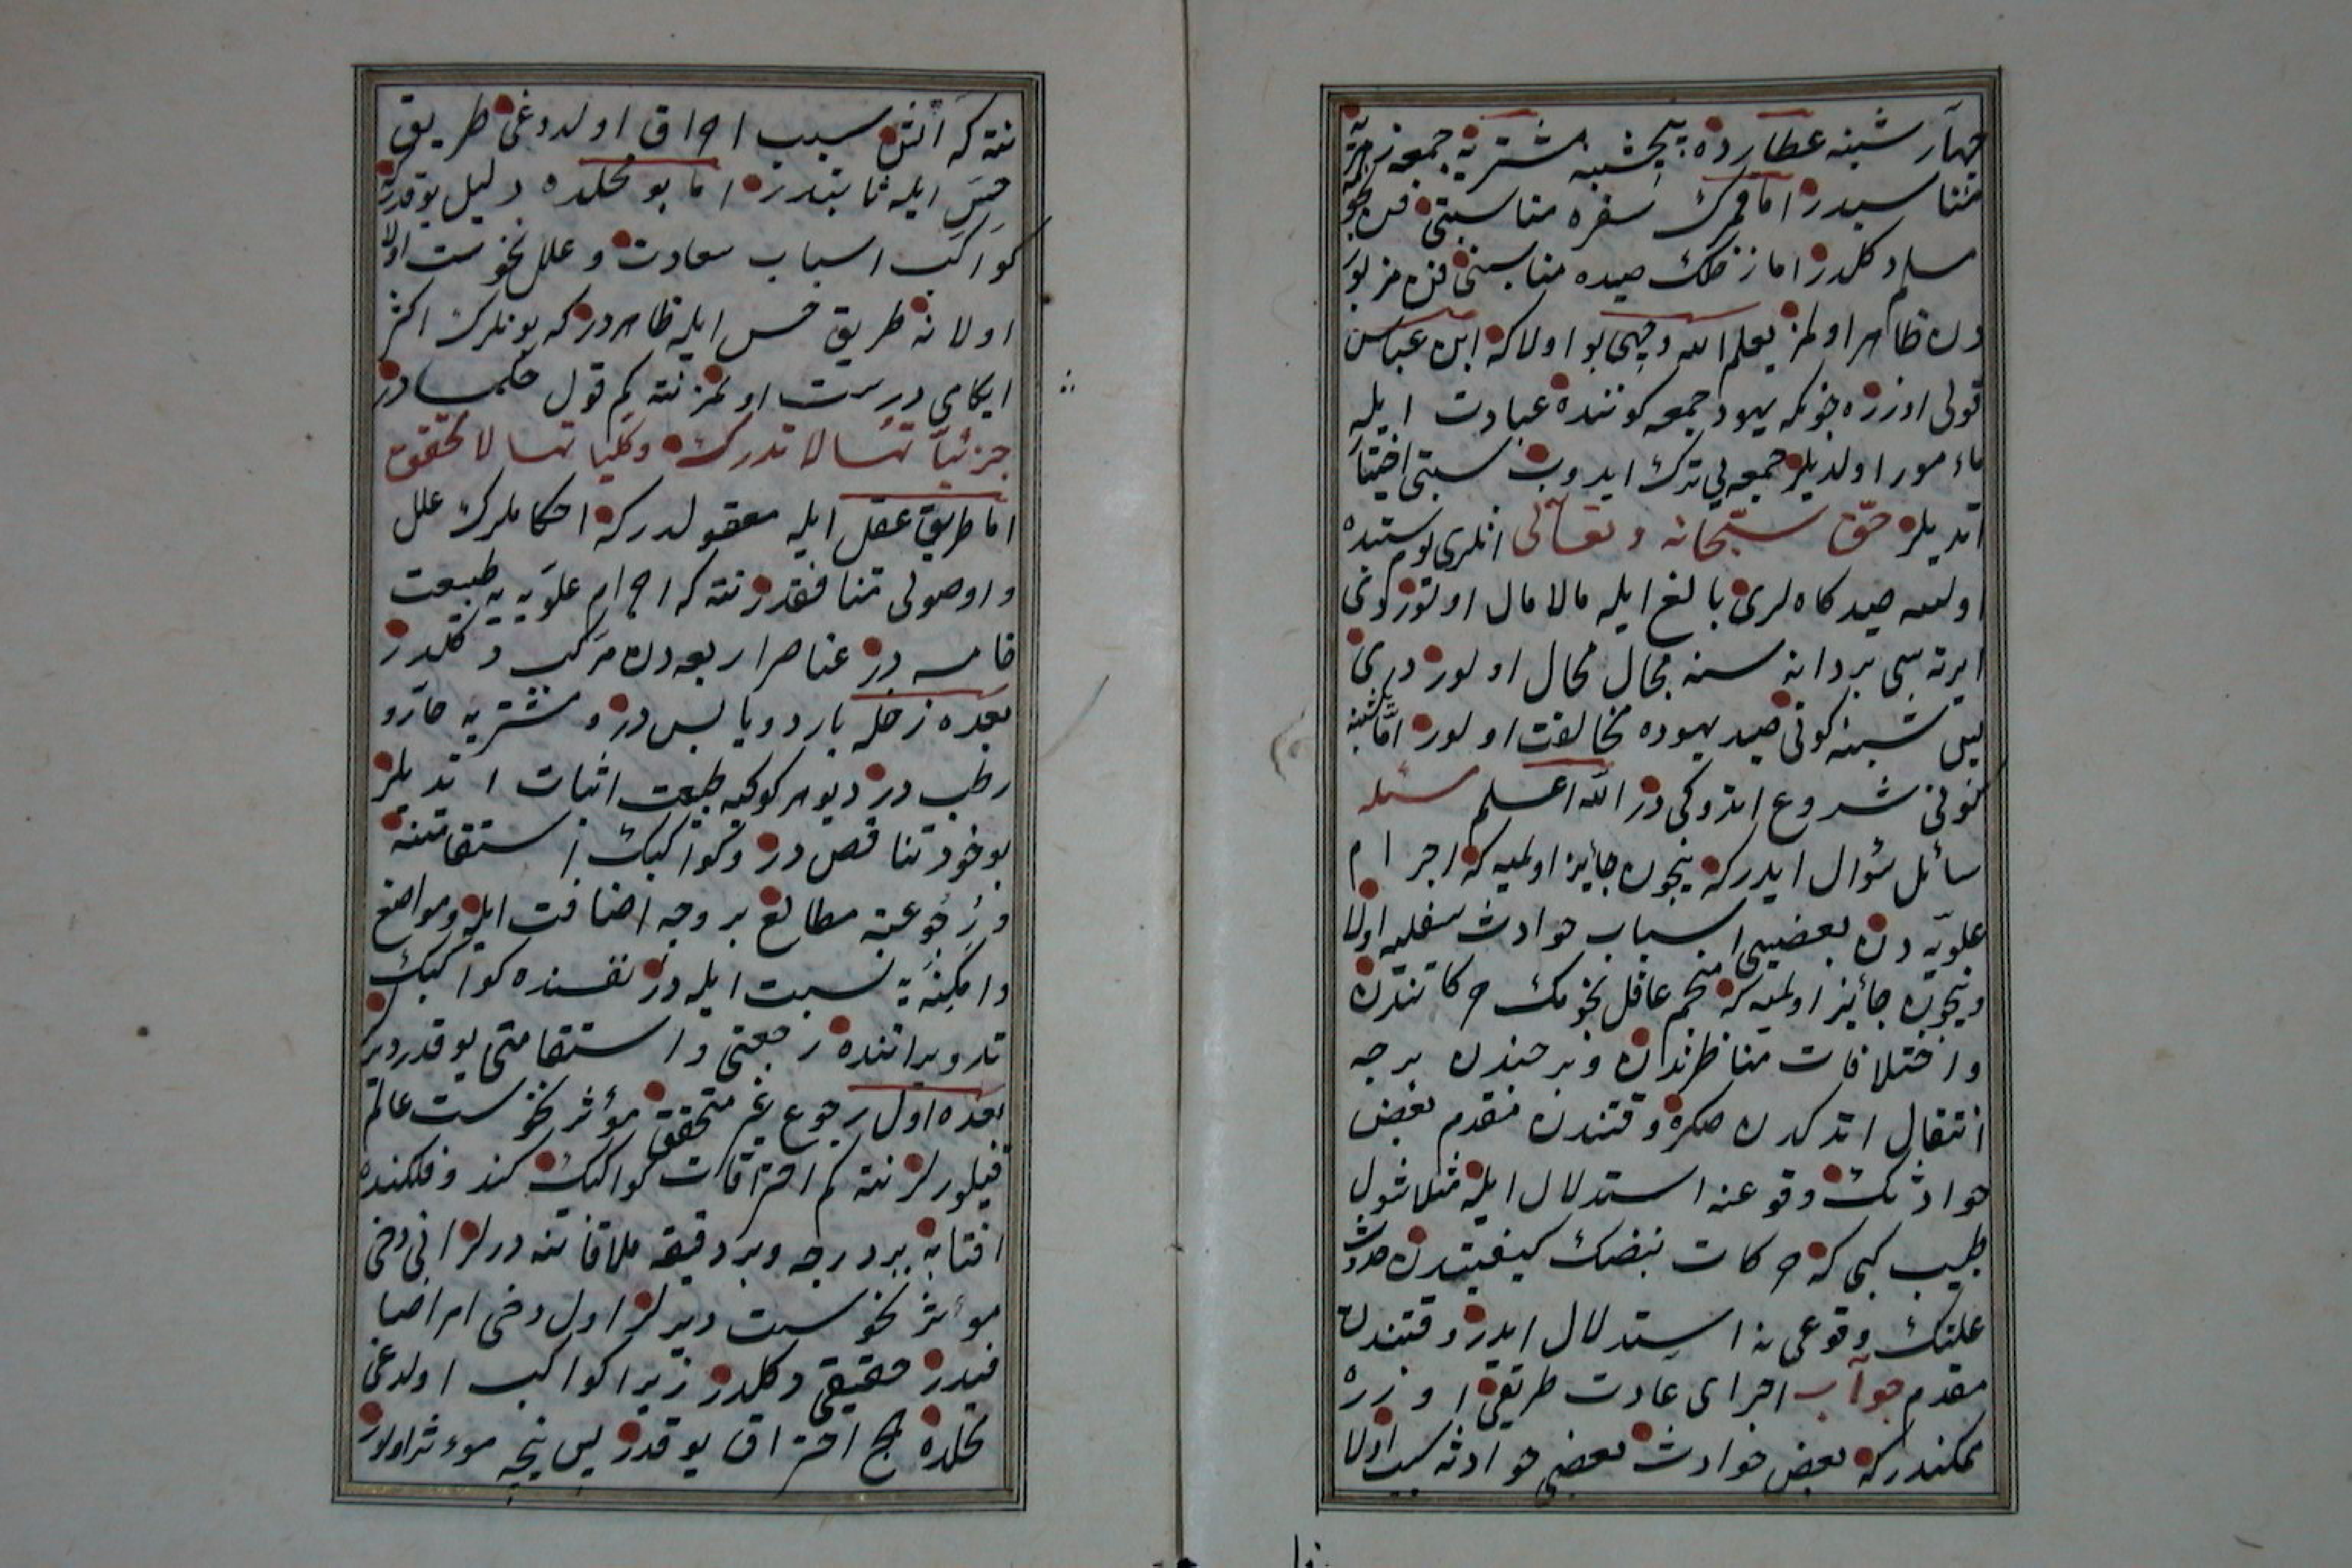 چهار شنبه عطارده پنجشنبه مشتریه جمعه زهرهیه
مناسبدر اما قمرك سفره مناسبتی فن نجو
مسلم دکلدر اما زحلك صیده مناسبتی فن مزبور
دن ظاهر اولمز یعلم الله وجهی بو اولا که ابن عباس
قولی اوزره چونکه یهود جمعه کوننده عبادت ایله
مأمور اولدیلر جمعه یی ترك ایدوب سبتی اختیار
اتدیلر حق سبحانه وتعالی انلری یوم سبتده
اولسه صیدکاه لری بالغ ایله مالامال اولور کونی
ایرته سی بر دانه سنه مجال محال اولور دی
پس شنبه کونی صید یهوده مخالفت اولور اما شنبه
کونی شروع اتدوکی در الله اعلم سئله
سائل سؤال ایدر که نیچون جائز اولمیه که اجرام
علویه دن بعضیسی اسباب حوادث سفلیه اولا
ونیچون جائز اولمیه که منجم عاقل نجومك حرکاتندن
واختلافات مناظرندن وبرجندن برجه
انتقال اتدکدن صکره وقتندن مقدم بعض
حوادثك وقوعنه استدلال ایله مثلا شول
طبیب کبی که حرکات نبضك کیفیتدن حدوث
علتك وقوعی نه استدلال ایدر وقتندن
مقدم جواب اجرای عادت طریقی اوزره
ممکندر که بعض حوادث بعضی حوادثه سبب اولا
نته که آتش سبب احراق اولدوغی طریق
حس ایله ثابتدر اما بو محلده دلیل یوقدر که
کواکب اسباب سعادت وعلل نحوست اولا
اولا نه طریق حس ایله ظاهردر که بونلرك اکثر
احکامی درست اولمز نته کم قول حکمادر
جزئیاتها لا تدرك وکلیاتها لا تحقق
اما طریق عقل ایله معقولدر که احکاملرك علل
واوصولی متناقضدر نته که اجرام علویه یه طبیعت
خامسه در عناصر اربعه دن مرکب دکلدر
بعده زحله بارد ویابس در ومشتریه حار و
رطب در دیو هر کوکبه طبیعت اثبات اتدیلر
بو خود تناقض در وکواکبك استقامتنه
ورجوعنه مطالع بروجه اضافت ایله ومواضع
وامکنه یه نسبت ایله در نفسنده کواکبك
تدویراتنده رجعتی واستقامتی یوقدر دیر
بعده اول رجوع غیر متحقق مؤثر نحوست عالم
قیلورلر نته کم احتراقات کواکبك کند وفلکنده
افتابه بر درجه وبر دقیقه ملاقاتنه درلر انی دخی
موءثر نحوست دیرلر اول دخی امر اضا
فیدر حقیقی دکلدر زیرا کواکب اولدغی
محلده هیچ احتراق یوقدر پس نیجه موءثر اولور